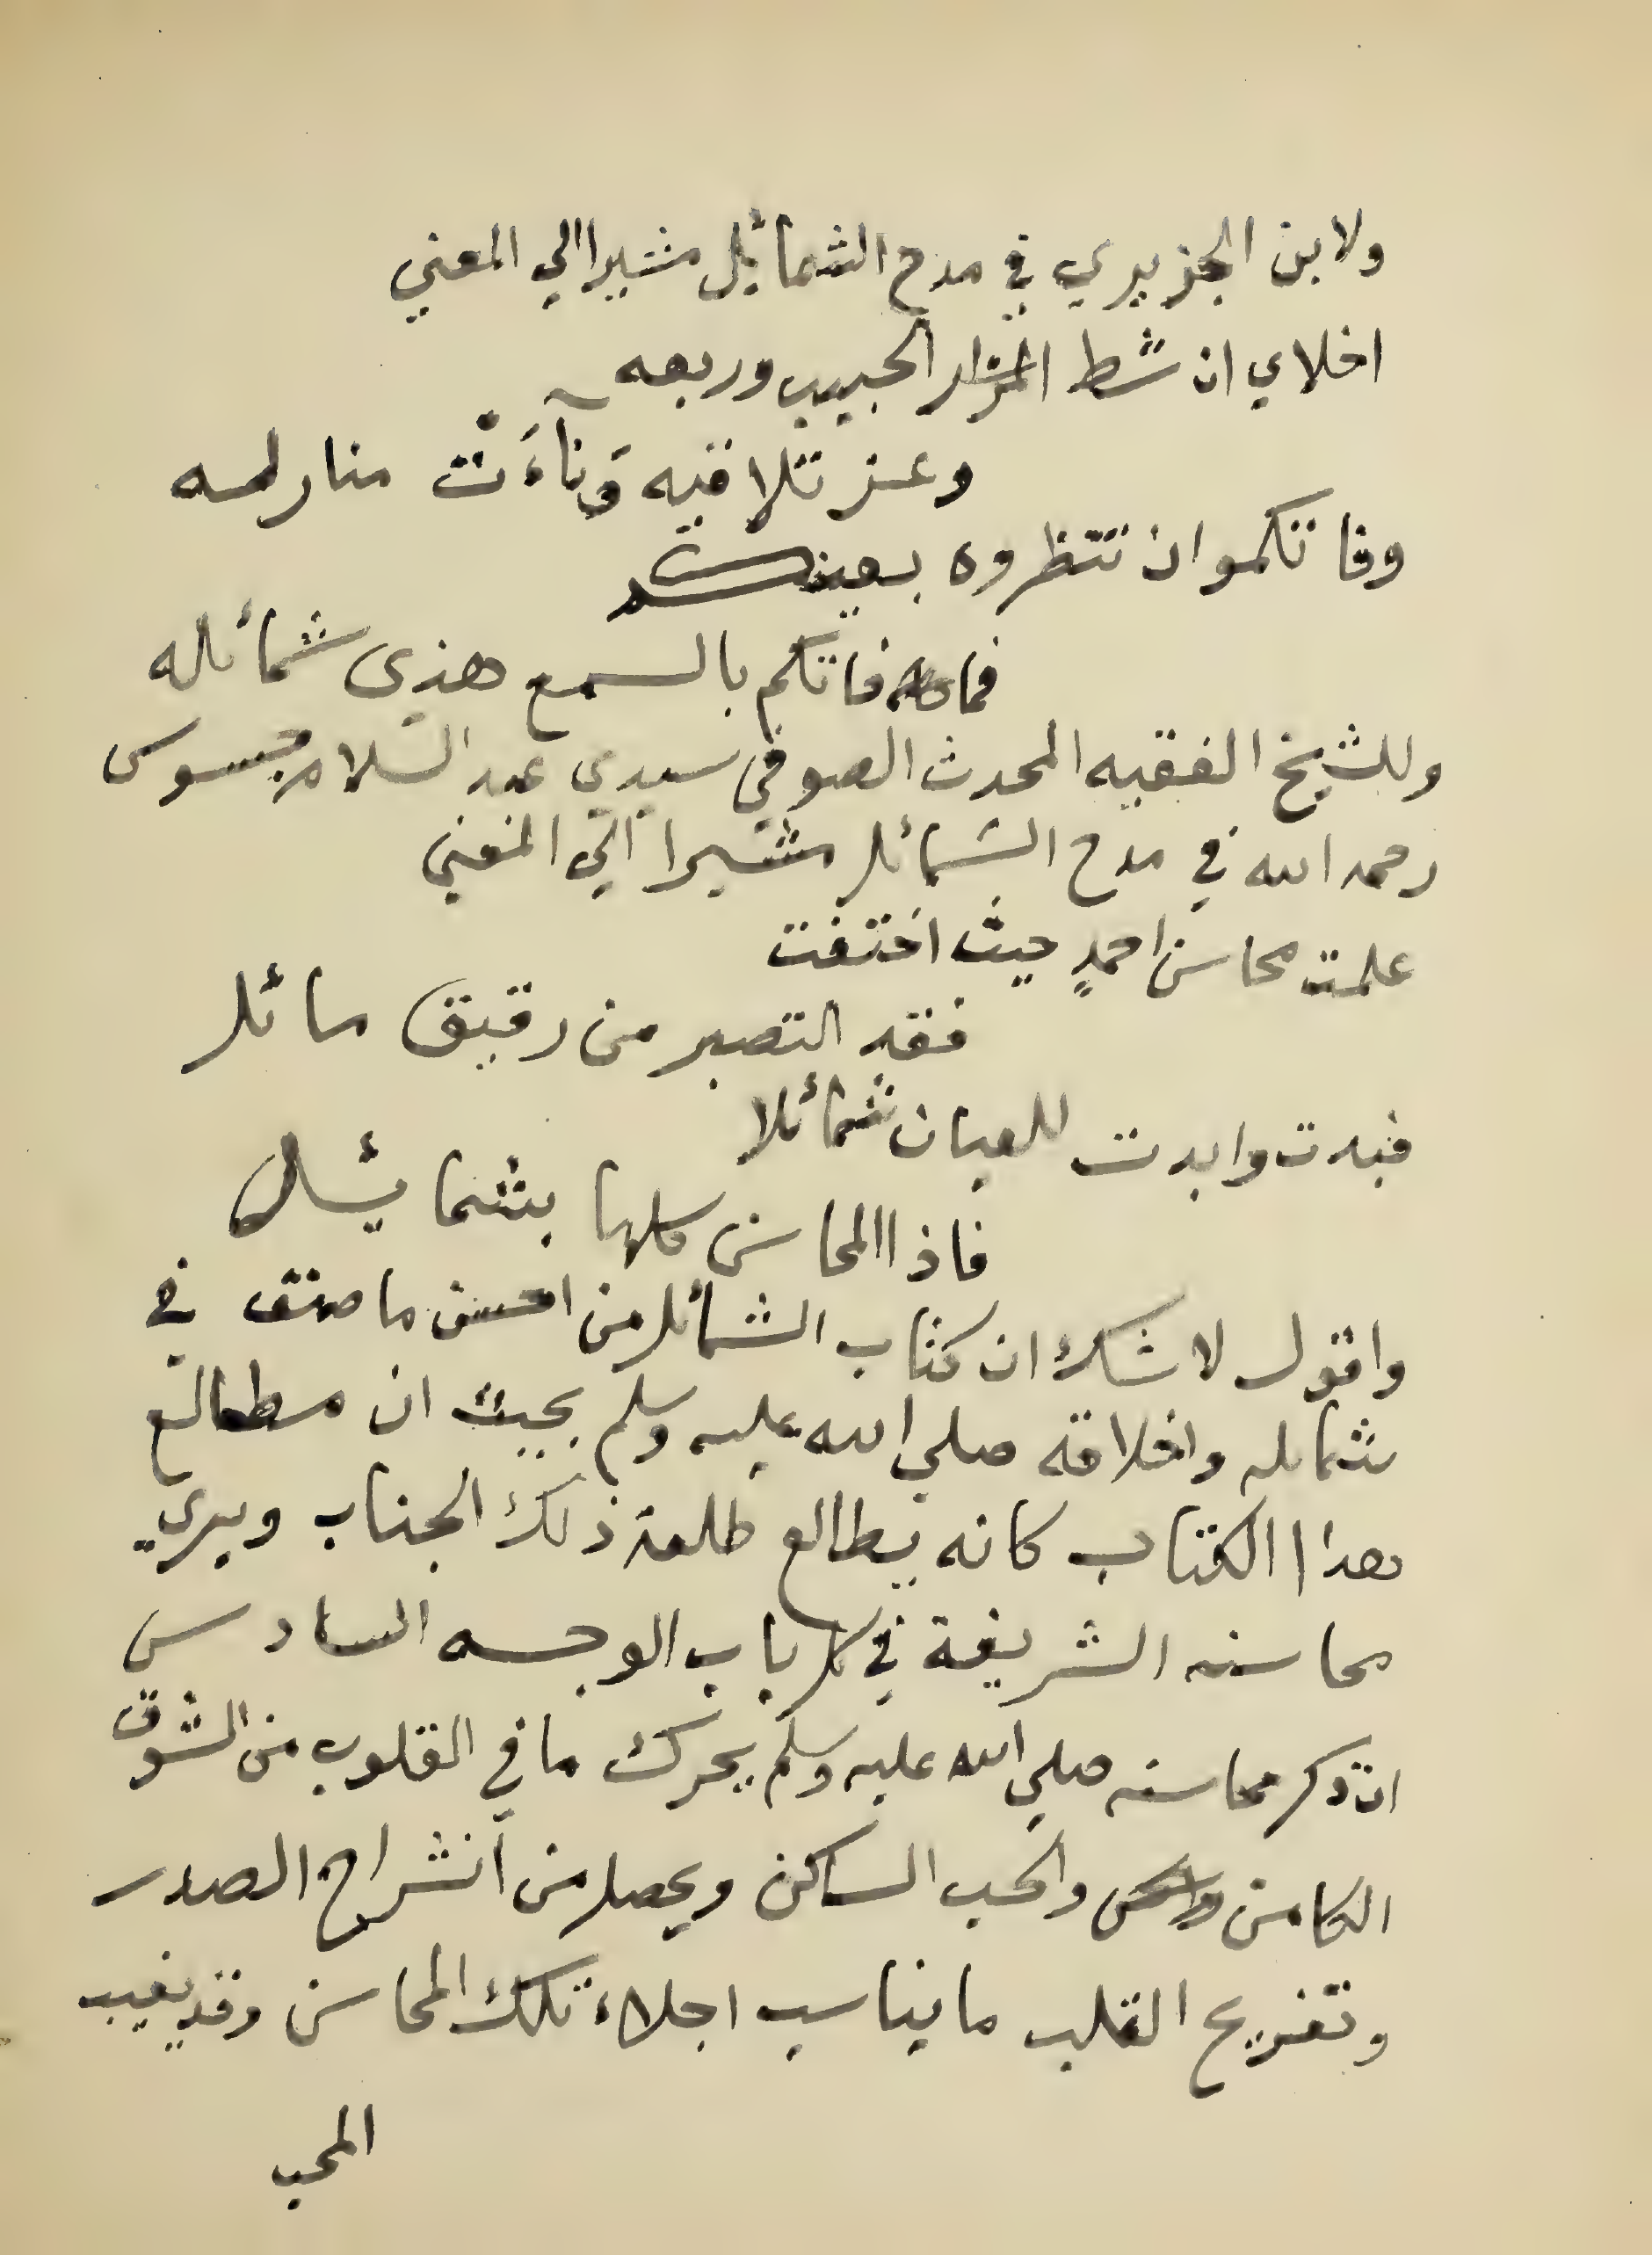 ولابن الجزيري في مدح الشمائيل مشيرا الي المعني
اخلاي ان شط الحبيب وربعه
وعز تلاقيه وَنآءَتْ منازلسه
وفاتكموان تنظروه بعينكم
فما فاتكم بالسمع هذي شمائله
وللشيخ الفقيه المحدث الصوفي سيدي عبد السلام جسوس
رحمه الله في مدح الشمائل مشيرا الي المعني
علمت محاسن احمدٍ حيث اختفت
فقد التصبر من رقيق سائل
فبدت وابدت للعيان شمائلا
فاذا المحاسن كلها بشمائيل
واقول لا شك ان كتاب الشمائل من احسن ما صنف في
شمائله واخلاقه صلي الله عليه وسلم بحيث ان مطالع
هذا الكتاب كانه يطالع طلعة ذلك الجناب ويري
محاسنه الشريفة في كل باب الوجه السادس
ان ذكر محاسنه صلي الله عليه وسلم يحرك ما في القلوب من الشوق
الكامن والحب الساكن ويحصل من انشراح الصدر
وتفريح القلب ما يناسب اجلاء تلك المحاسن وقد يغيب
المحب